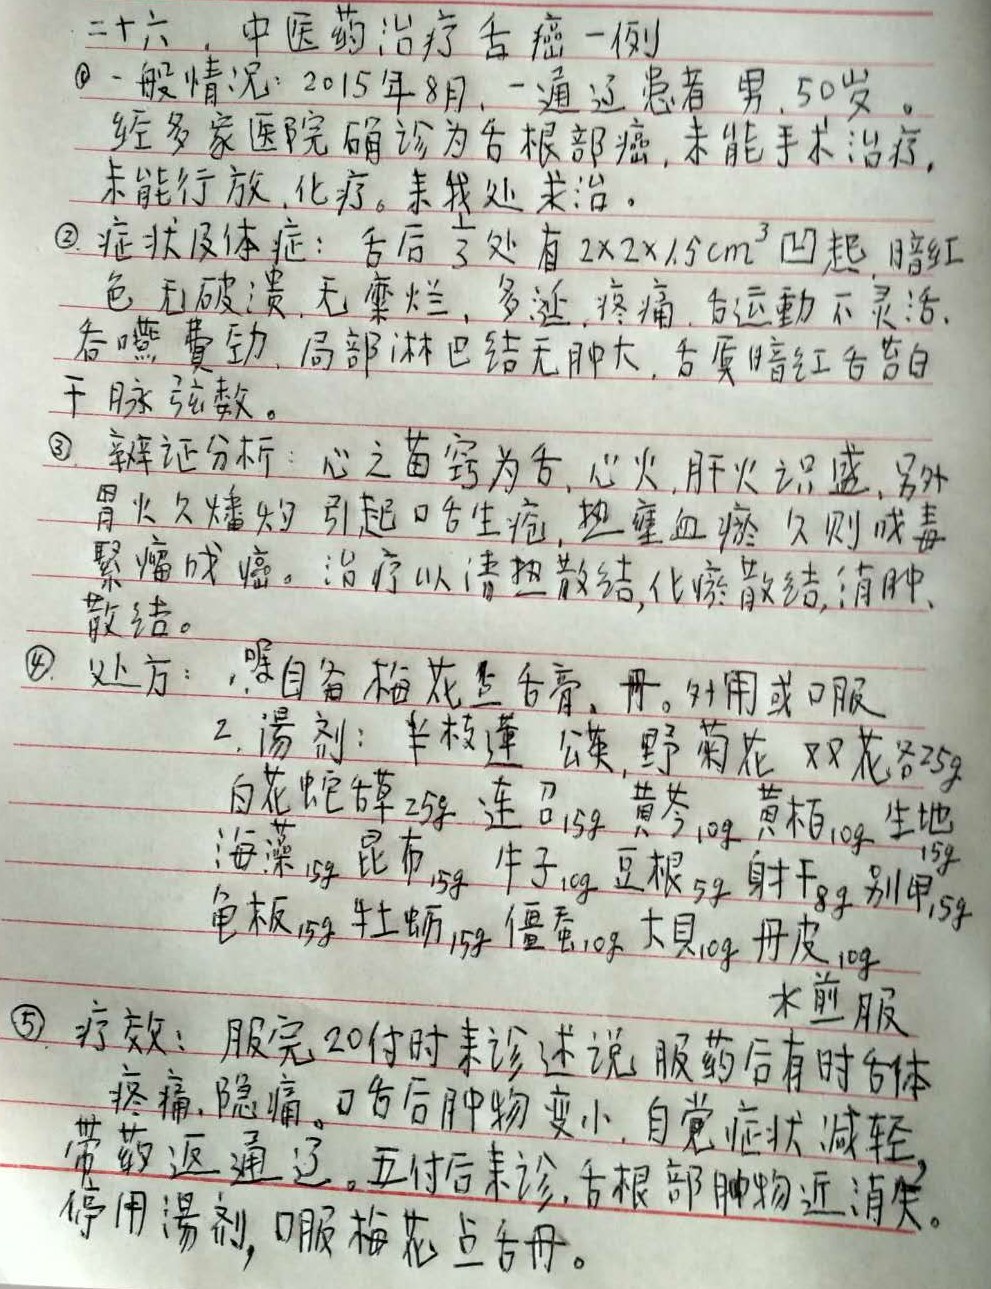 二十六、中医药治疗舌癌一例
① 一般情况：2015年8月，一通辽患者 男，50岁。
经多家医院确诊为舌根部癌，未能手术治疗，
未能行放、化疗。来我处求治。
② 症状及体症：舌后1/3处有2×2×1.5cm³凹起，暗红
色 无破溃，无糜烂，多涎，疼痛，舌运動不灵活，
吞嚥費劲，局部淋巴结无肿大，舌质暗红舌苔白
干 脉弦数。
③ 辨证分析：心之苗窍为舌，心火，肝火识盛，另外
胃火久燔灼 引起口舌生疮，热壅血瘀 久则成毒
緊瘤成癌。治疗以清热散结，化瘀散结，消肿、
散结。
④ 处方：1.嘱自备梅花点舌膏、丹。外用或口服
2. 湯剂：半枝蓮 公英，野菊花 双花各25g
白花蛇舌草25g 连召15g 黄芩10g 黄柏10g 生地15g
海藻15g 昆布15g 牛子10g 豆根5g 射干8g 别甲15g
龟板15g 牡蛎15g 僵蚕10g 大貝10g 丹皮10g
水煎服
⑤ 疗效：服完20付时来诊述说 服药后有时舌体
疼痛、隐痛。口舌后肿物变小，自觉症状减轻，
带药返通辽。五付后来诊，舌根部肿物近消失。
停用湯剂，口服梅花点舌丹。